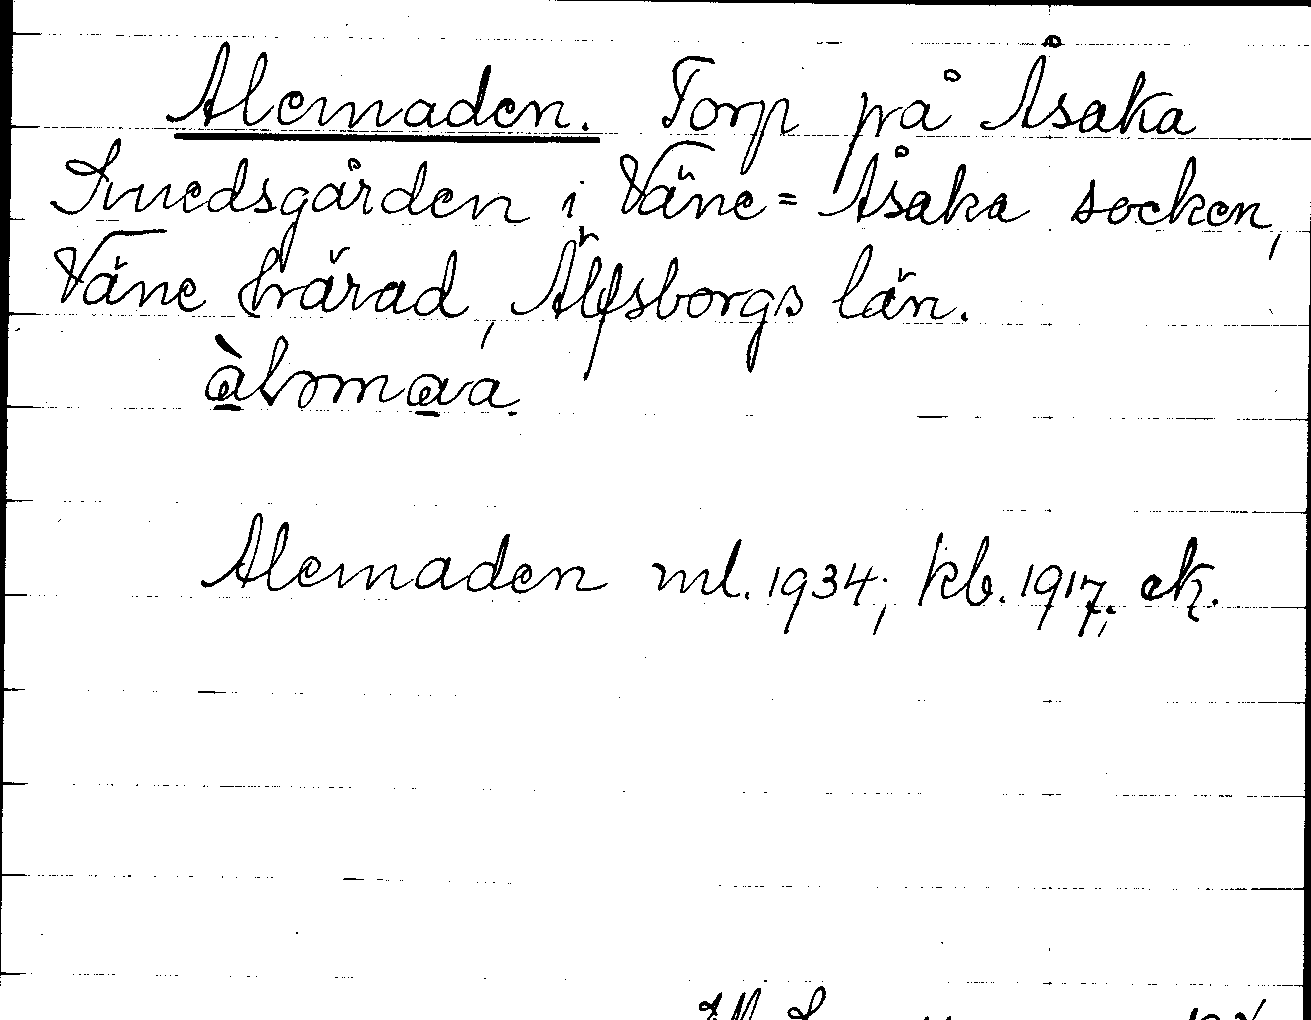 Alemaden. Torp på Åsaka
Smedsgården i Väne=Åsaka socken,
Väne härad, Älfsborgs län.
Alemaden ml. 1934; kb. 1917; ek.